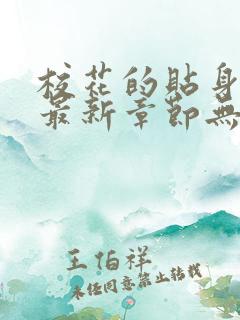 校花的貼身
最新章節無
王伯祥
未经同意禁止转载